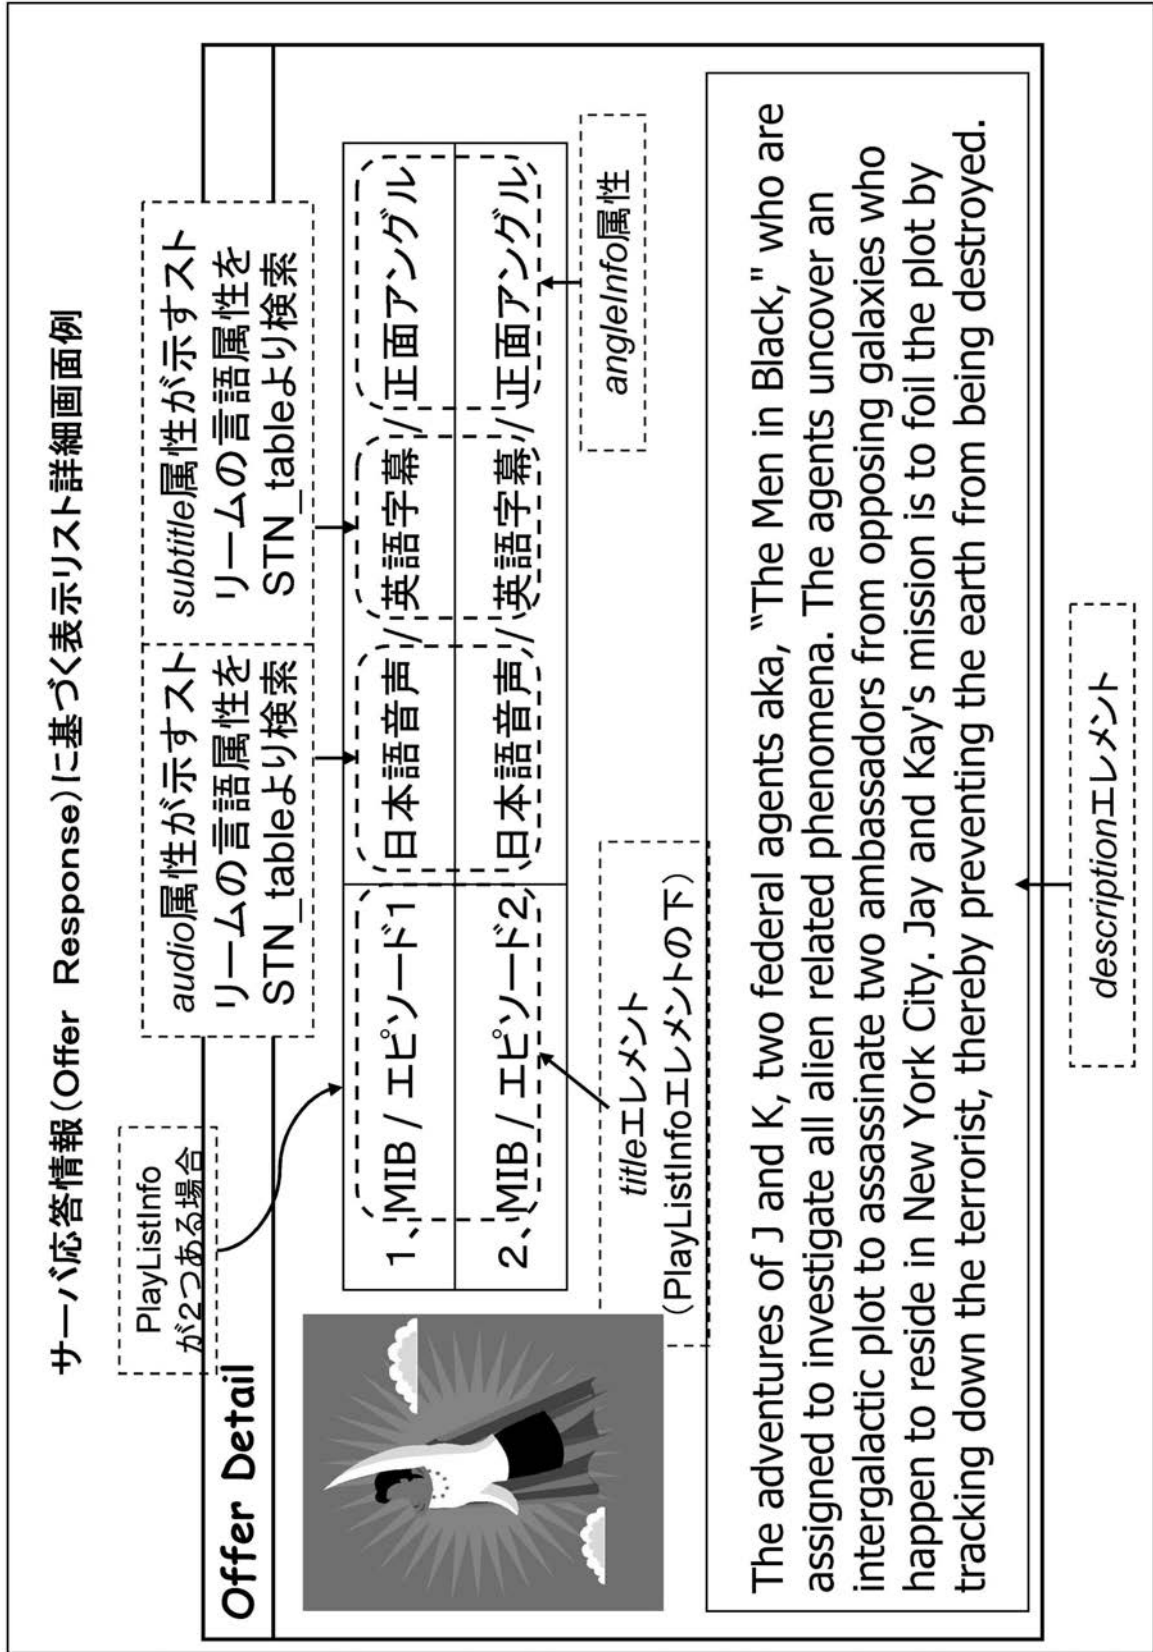 サーバ応答情報(Offer Response)に基づく表示リスト詳細画面例
PlayListInfo
が2つある場合
audio属性が示すスト
リームの言語属性を
STN_tableより検索
subtitle属性が示すスト
リームの言語属性を
STN_tableより検索
Offer Detail
1、MIB / エピソード1 日本語音声 / 英語字幕 / 正面アングル
2、MIB / エピソード2 日本語音声 / 英語字幕 / 正面アングル
titleエレメント
(PlayListInfoエレメントの下)
angleInfo属性
The adventures of J and K, two federal agents aka, “The Men in Black," who are
assigned to investigate all alien related phenomena. The agents uncover an
intergalactic plot to assassinate two ambassadors from opposing galaxies who
happen to reside in New York City. Jay and Kay's mission is to foil the plot by
tracking down the terrorist, thereby preventing the earth from being destroyed.
descriptionエレメント